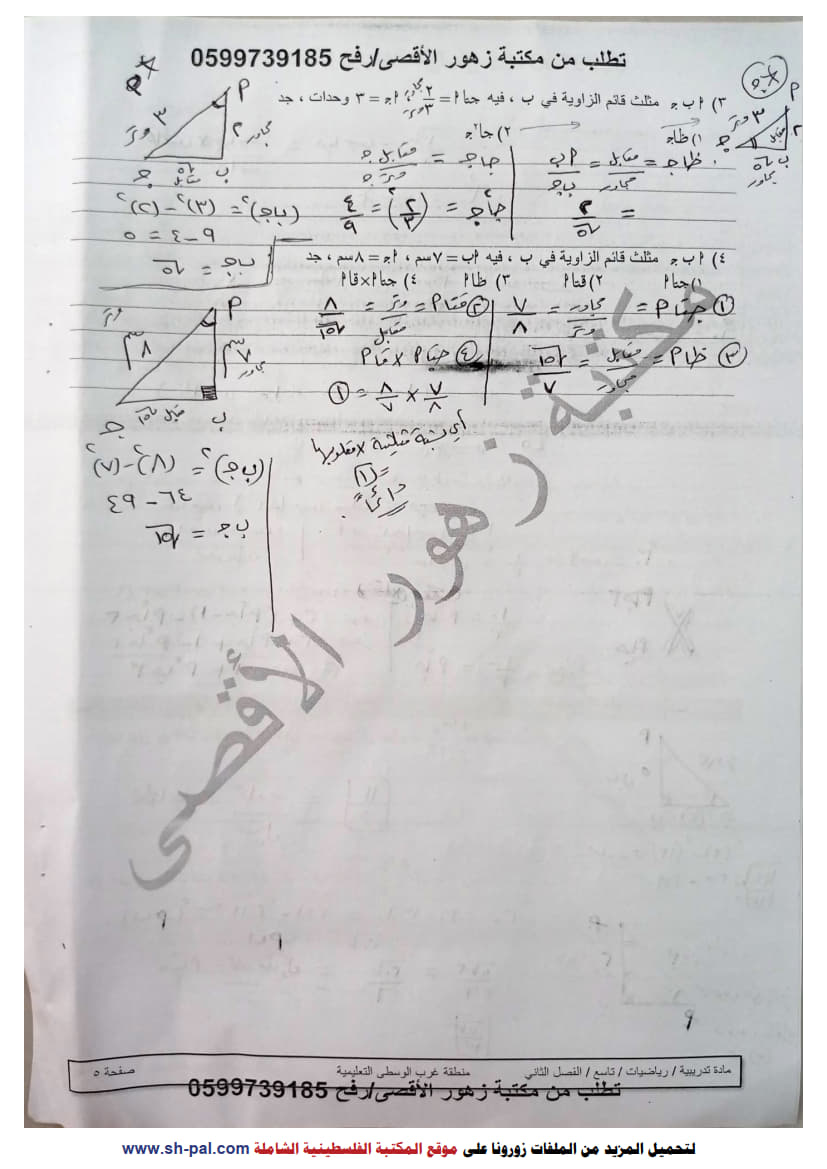 تطلب من مكتبة زهور الأقصى/رفح 0599739185
٣) أ ب جـ مثلث قائم الزاوية في ب ، فيه جتا أ = ٢/٣ ، أ جـ = ٣ وحدات ، جد
١) ظا جـ ٢) جا٢ جـ
ظا جـ = مقابل/مجاور = أ ب/ب جـ
= ٢/√٥
جا جـ = مقابل/وتر
جا٢ جـ = (٢/٣)٢ = ٤/٩
أ
٣ وتر
٢ مجاور
ب √٥ مقابل جـ
(ب جـ)٢ = (٣)٢ - (٢)٢
٩ - ٤ = ٥
ب جـ = √٥
أ
٣ وتر
٢ مقابل
جـ ب
√٥
مجاور
٤) أ ب جـ مثلث قائم الزاوية في ب ، فيه أ ب = ٧سم ، أ جـ = ٨سم ، جد
١) جتا أ ٢) قتا أ ٣) ظا أ ٤) جتا أ × قا أ
① جتا أ = مجاور/وتر = ٧/٨
② قتا أ = وتر/مقابل = ٨/√١٥
③ ظا أ = مقابل/مجاور = √١٥/٧
④ جتا أ × قا أ
٧/٨ × ٨/٧ = ①
أي نسبة مثلثية × مقلوبها
= (١)
دائماً
أ
وتر
٨سم
٧سم
مجاور
ب مقابل √١٥ جـ
(ب جـ)٢ = (٨)٢ - (٧)٢
٦٤ - ٤٩
ب جـ = √١٥
مكتبة زهور الأقصى
مادة تدريبية / رياضيات / تاسع / الفصل الثاني منطقة غرب الوسطى التعليمية صفحة ٥
تطلب من مكتبة زهور الأقصى/رفح 0599739185
لتحميل المزيد من الملفات زورونا على موقع المكتبة الفلسطينية الشاملة www.sh-pal.com